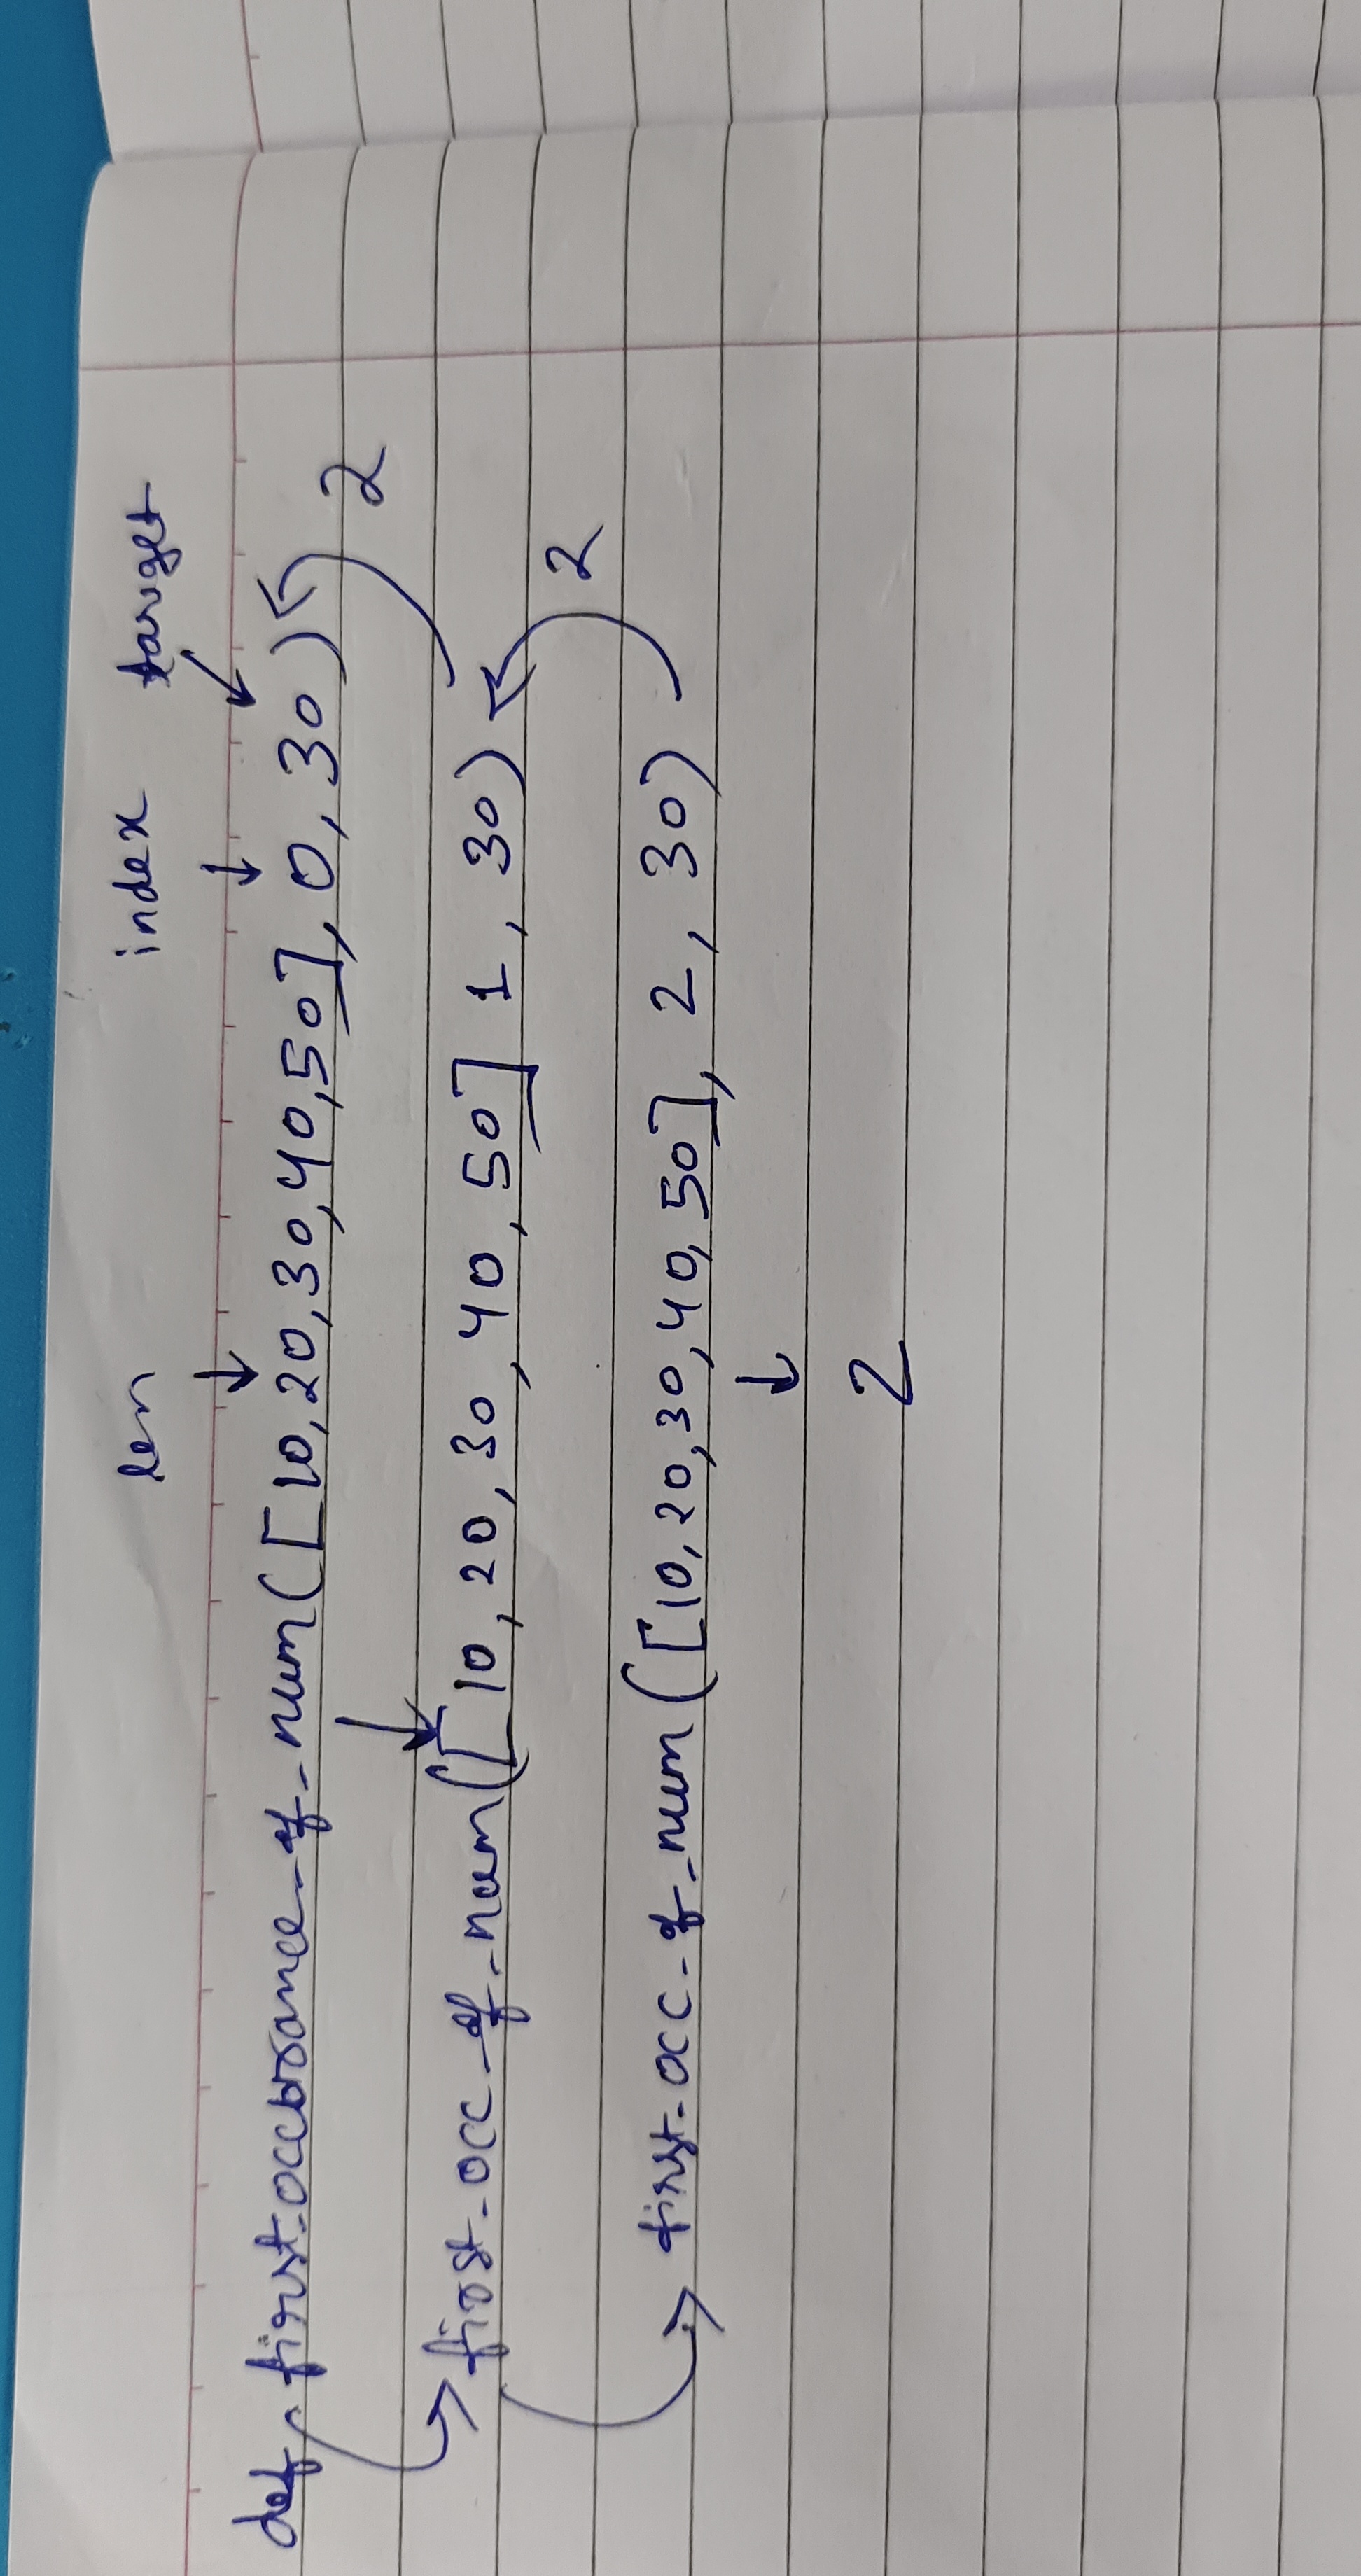 len index target
def first_occurance_of_num([10,20,30,40,50],0,30)
2
first_occ_of_num([10,20,30,40,50] 1,30)
2
first_occ_of_num([10,20,30,40,50],2,30)
2